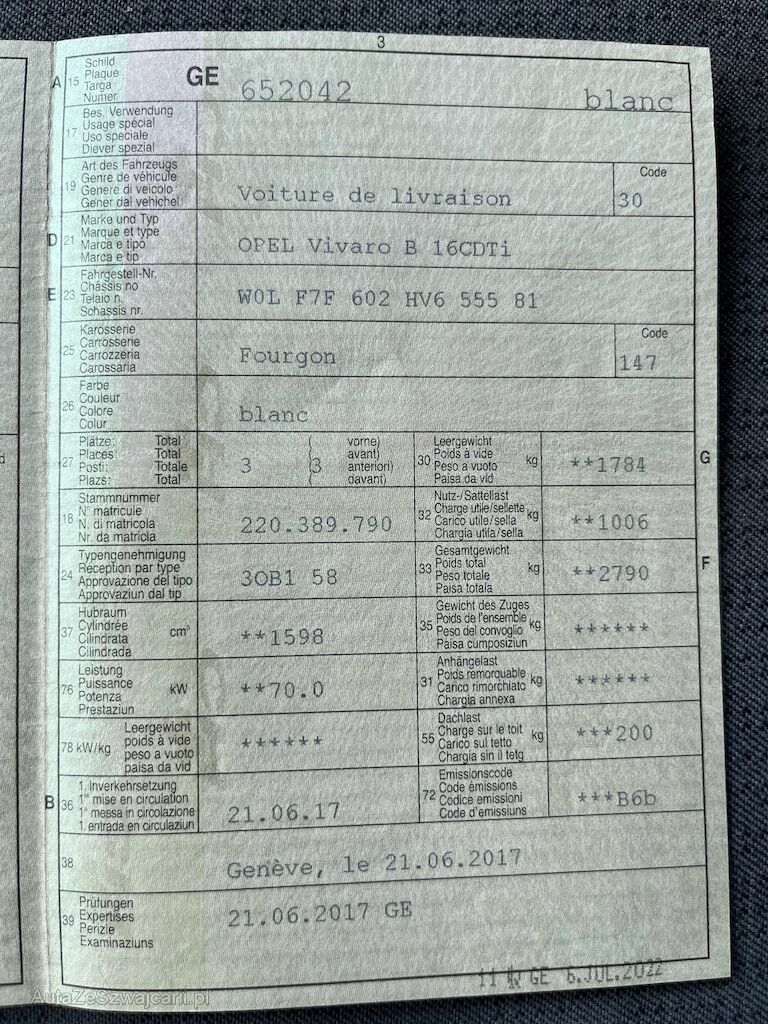 3
A 15 Schild
Plaque
Targa
Numer
GE 652042 blanc
17 Bes. Verwendung
Usage spécial
Uso speciale
Diever spezial
19 Art des Fahrzeugs
Genre de véhicule
Genere di veicolo
Gener dal vehichel
Voiture de livraison
Code
30
D 21 Marke und Typ
Marque et type
Marca e tipo
Marca e tip
OPEL Vivaro B 16CDTi
E 23 Fahrgestell-Nr.
Châssis no
Telaio n.
Schassis nr.
W0L F7F 602 HV6 555 81
25 Karosserie
Carrosserie
Carrozzeria
Carossaria
Fourgon
Code
147
26 Farbe
Couleur
Colore
Colur
blanc
27 Plätze: Total ( vorne)
Places: Total avant)
Posti: Totale anteriori)
Plazs: Total ( davant)
3 (3
30 Leergewicht
Poids à vide kg
Peso a vuoto
Paisa da vid
**1784
G
18 Stammnummer
N° matricule
N. di matricola
Nr. da matricla
220.389.790
32 Nutz-/Sattellast
Charge utile/sellette kg
Carico utile/sella
Chargia utila/sella
**1006
24 Typengenehmigung
Réception par type
Approvazione del tipo
Approvaziun dal tip
3OB1 58
33 Gesamtgewicht
Poids total kg
Peso totale
Paisa totala
**2790
F
37 Hubraum
Cylindrée cm³
Cilindrata
Cilindrada
**1598
35 Gewicht des Zuges
Poids de l'ensemble
Peso del convoglio kg
Paisa cumposiziun
******
76 Leistung
Puissance kW
Potenza
Prestaziun
**70.0
31 Anhängelast
Poids remorquable
Carico rimorchiato kg
Chargia annexa
******
78 kW/kg Leergewicht
poids à vide
peso a vuoto
paisa da vid
******
55 Dachlast
Charge sur le toit kg
Carico sul tetto
Chargia sin il tetg
***200
B 36 1. Inverkehrsetzung
1re mise en circulation
1a messa in circolazione
1. entrada en circulaziun
21.06.17
72 Emissionscode
Code émissions
Codice emissioni
Code d'emissiuns
***B6b
38
Genève, le 21.06.2017
39 Prüfungen
Expertises
Perizie
Examinaziuns
21.06.2017 GE
GE 6.JUL.2022
AutaZeSzwajcarii.pl